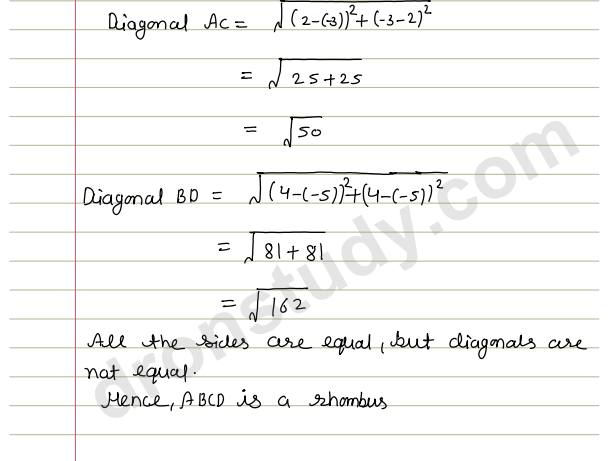 Diagonal AC = √(2-(-3))²+(-3-2)²
= √25+25
= √50
Diagonal BD = √(4-(-5))²+(4-(-5))²
= √81+81
= √162
All the sides are equal, but diagonals are
not equal.
Hence, ABCD is a rhombus
dronstudy.com